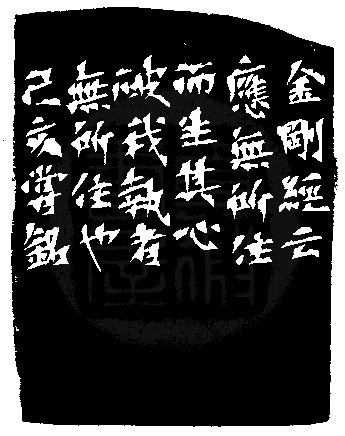 金剛經云
應無所住
而生其心
破我執者
無所住也
己亥銘